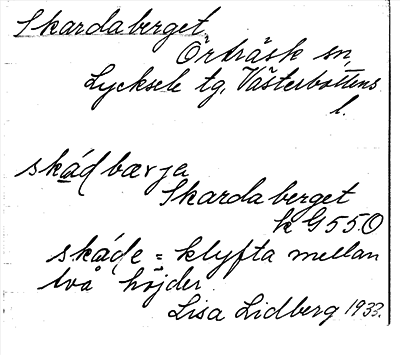 Skardaberget,
Örträsk sn,
Lycksele tg, Västerbottens
l.
skádbærja
Skardaberget
k G550
skáde = klyfta mellan
två höjder
Lisa Lidberg 1933.